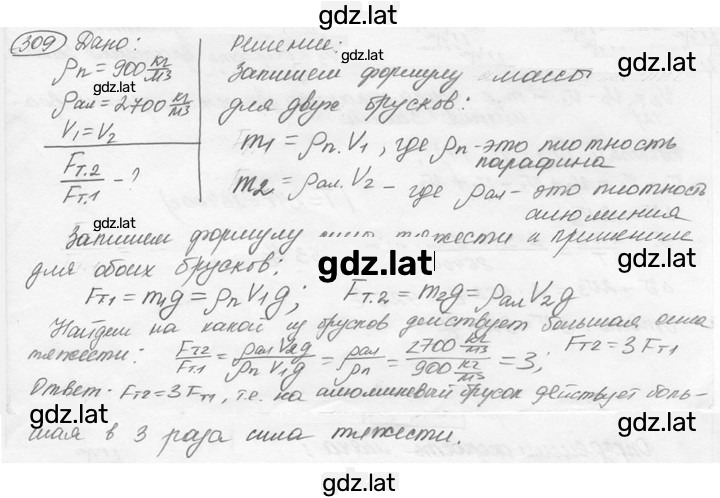 gdz.lat
309 Дано:
ρп = 900 кг/м3
gdz.lat
ρал = 2700 кг/м3
V1 = V2
Fт.2/Fт.1 - ?
gdz.lat
Решение:
Запишем формулу массы
gdz.lat
для двух брусков:
m1 = ρп. V1, где ρп - это плотность
парафина
m2 = ρал. V2 - где ρал - это плотность
алюминия
gdz.lat
Запишем формулу силы тяжести и применим
gdz.lat
для обоих брусков:
gdz.lat
Fт1 = m1g = ρп V1g; Fт.2 = m2g = ρал V2g
Найдём на какой из брусков действует большая сила
gdz.lat
тяжести: Fт2/Fт1 = ρал V2g/ρп V1g = ρал/ρп = 2700 кг/м3/900 кг/м3 = 3; Fт2 = 3Fт1
gdz.lat
Ответ: Fт2 = 3Fт1, т.е. на алюминиевый брусок действует боль-
gdz.lat
gdz.lat
шая в 3 раза сила тяжести.
gdz.lat